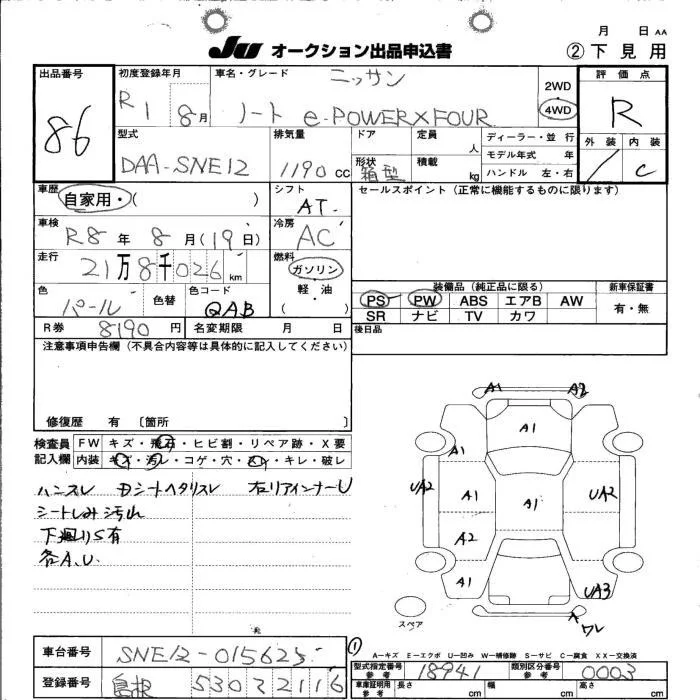 月 日 AA
JU オークション出品申込書 ②下見用
出品番号 初度登録年月 車名・グレード ニッサン 評価点
86 R1 8月 ノート e-POWER X FOUR 2WD 4WD R
型式 排気量 ドア 定員 人 ディーラー・並行 外装 内装
DAA-SNE12 1190 cc 形状 箱型 積載 kg モデル年式 年 ハンドル 左・右 C
車歴 自家用・( ) シフト AT セールスポイント(正常に機能するものに限ります)
車検 R8年 8月(19日) 冷房 AC
走行 21万8千026km 燃料 ガソリン 軽・油 ( )
装備品(純正品に限る) 新車保証書
色 パール 色替 色コード QAB PS PW ABS エアB AW 有・無
SR ナビ TV カワ
R券 8190円 名変期限 月 日 後日品
注意事項申告欄(不具合内容等は具体的に記入してください)
修復歴 有 〔箇所 〕
検査員 FW キズ・飛石・ヒビ割・リペア跡・X要
記入欄 内装 キズ・汚レ・コゲ・穴・スレ・キレ・破レ
ハンスレ Dシートヘタリスレ 右リアインナーU
シートしみ汚れ
下廻りS有
各A.U.
A1 A2
A1
A1
UA2 A1 A1 UA2
A2
A1 UA3
スペア ワレ
A-キズ E-エクボ U-凹み W-補修跡 S-サビ C-腐食 XX-交換済
車台番号 SNE12-015625 ① 型式指定番号 参考 18941 類別区分番号 参考 0003
登録番号 島根 530 ス 2116 車庫証明用 参考 長さ cm 幅 cm 高さ cm